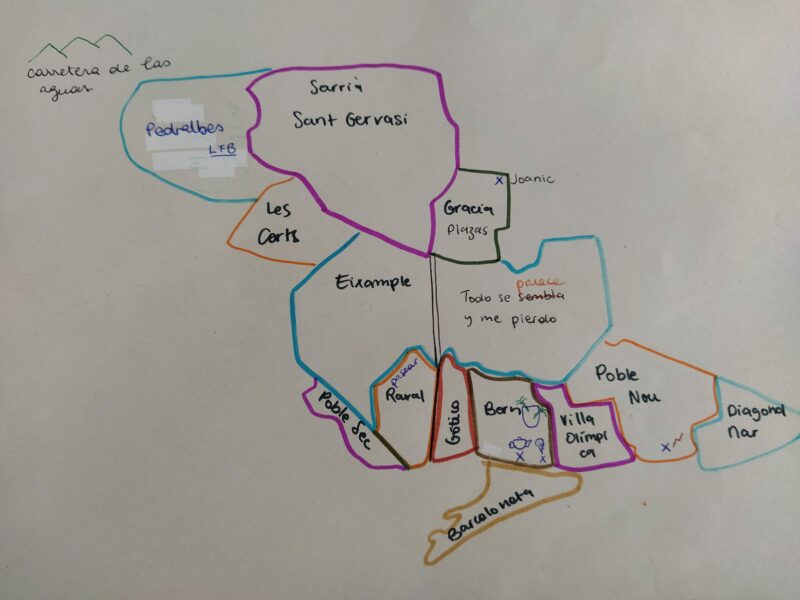 carretera de las
aguas
Pedralbes
LFB
Sarrià
Sant Gervasi
Joanic
Les
Corts
Gracia
Plazas
Eixample
parece
Todo se sembla
y me pierdo
Poble Sec
pasear
Raval
Gótico
Born
Villa
Olímpi
ca
Poble
Nou
Diagonal
Mar
Barceloneta